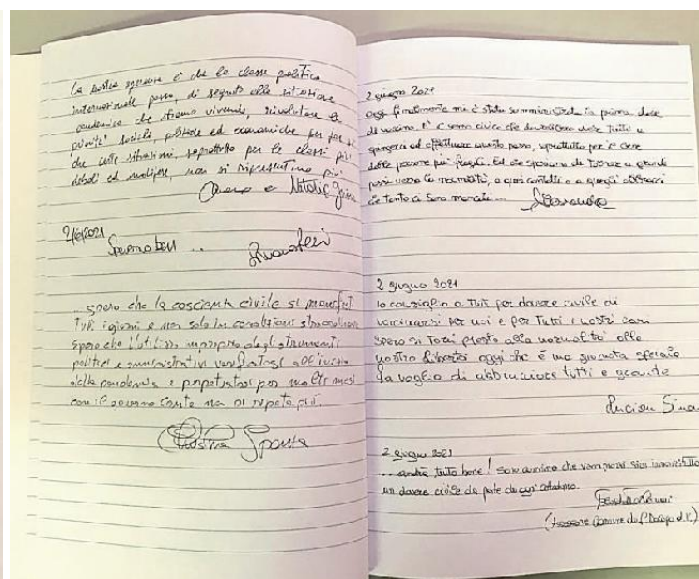 La nostra speranza è che la classe politica
internazionale possa, di seguito alla situazione
pandemica che stiamo vivendo, rivalutare le
priorità sociali, politiche ed economiche per far sì
che certe situazioni soprattutto per le classi più
deboli ed indifese, non si ripresentino più
e Natalie
2/6/2021
Speriamo bene ...
Spero che la coscienza civile si manifesti
tutti i giorni e non solo in condizioni straordinarie
Spero che l'utilizzo improprio degli strumenti
politici e amministrativi verificatosi all'inizio
della pandemia e perpetratosi per molti mesi
con il governo Conte non si ripeta più.
2 giugno 2021
Oggi finalmente mi è stata somministrata la prima dose
di vaccino. È il senso civico che dovrebbe tutti a
spingerci ad effettuare questo passo, soprattutto per il bene
delle persone più fragili. Ed è la speranza di tornare a grandi
passi verso la normalità, a quei contatti e a quegli abbracci
che tanto ci sono mancati ...
2 giugno 2021
Io consiglio a tutti per dovere civile di
vaccinarsi per noi e per tutti i nostri cari
Spero si torni presto alla normalità alla
nostra libertà oggi che è una giornata speciale
la voglia di abbracciare tutti è grande
2 giugno 2021
... andrà tutto bene! Sono convinto che vaccinarsi sia innanzitutto
un dovere civile da parte di ogni cittadino.
(Assessore Comune di